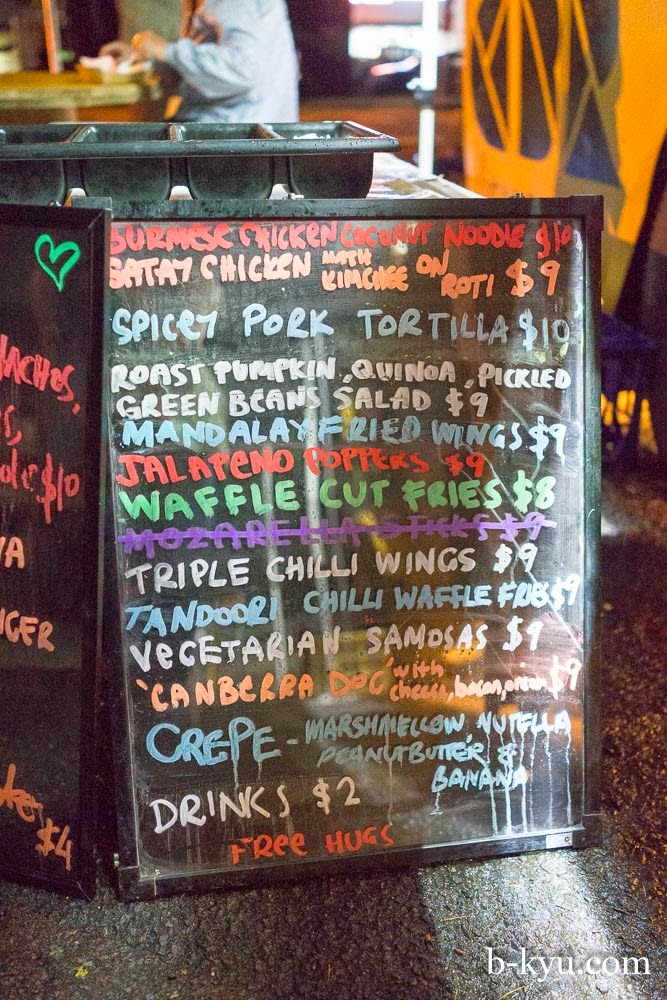 BURMESE CHICKEN COCONUT NOODLE $10
SATAY CHICKEN WITH KIMCHEE ON ROTI $9
SPICEY PORK TORTILLA $10
ROAST PUMPKIN, QUINOA, PICKLED
GREEN BEANS SALAD $9
MANDALAY FRIED WINGS $9
JALAPENO POPPERS $9
WAFFLE CUT FRIES $8
MOZARELLA STICKS $9
TRIPLE CHILLI WINGS $9
TANDOORI CHILLI WAFFLE FRIES $9
VEGETARIAN SAMOSAS $9
'CANBERRA DOG' with cheese, bacon, onion $9
CREPE - MARSHMELLOW, NUTELLA
PEANUTBUTTER &
BANANA
DRINKS $2
FREE HUGS
$10
$4
b-kyu.com